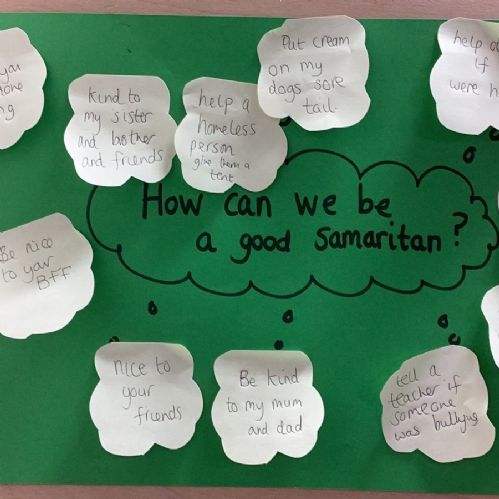 you
Kind to
my sister
and brother
and friends
help a
homeless
person
give them a
tent
Put cream
on my
dogs sore
tail.
help
if
were
How can we be
a good Samaritan?
Be nice
to your
BFF
nice to
your
friends
Be kind
to my mum
and dad
tell a
teacher if
someone
was bullying